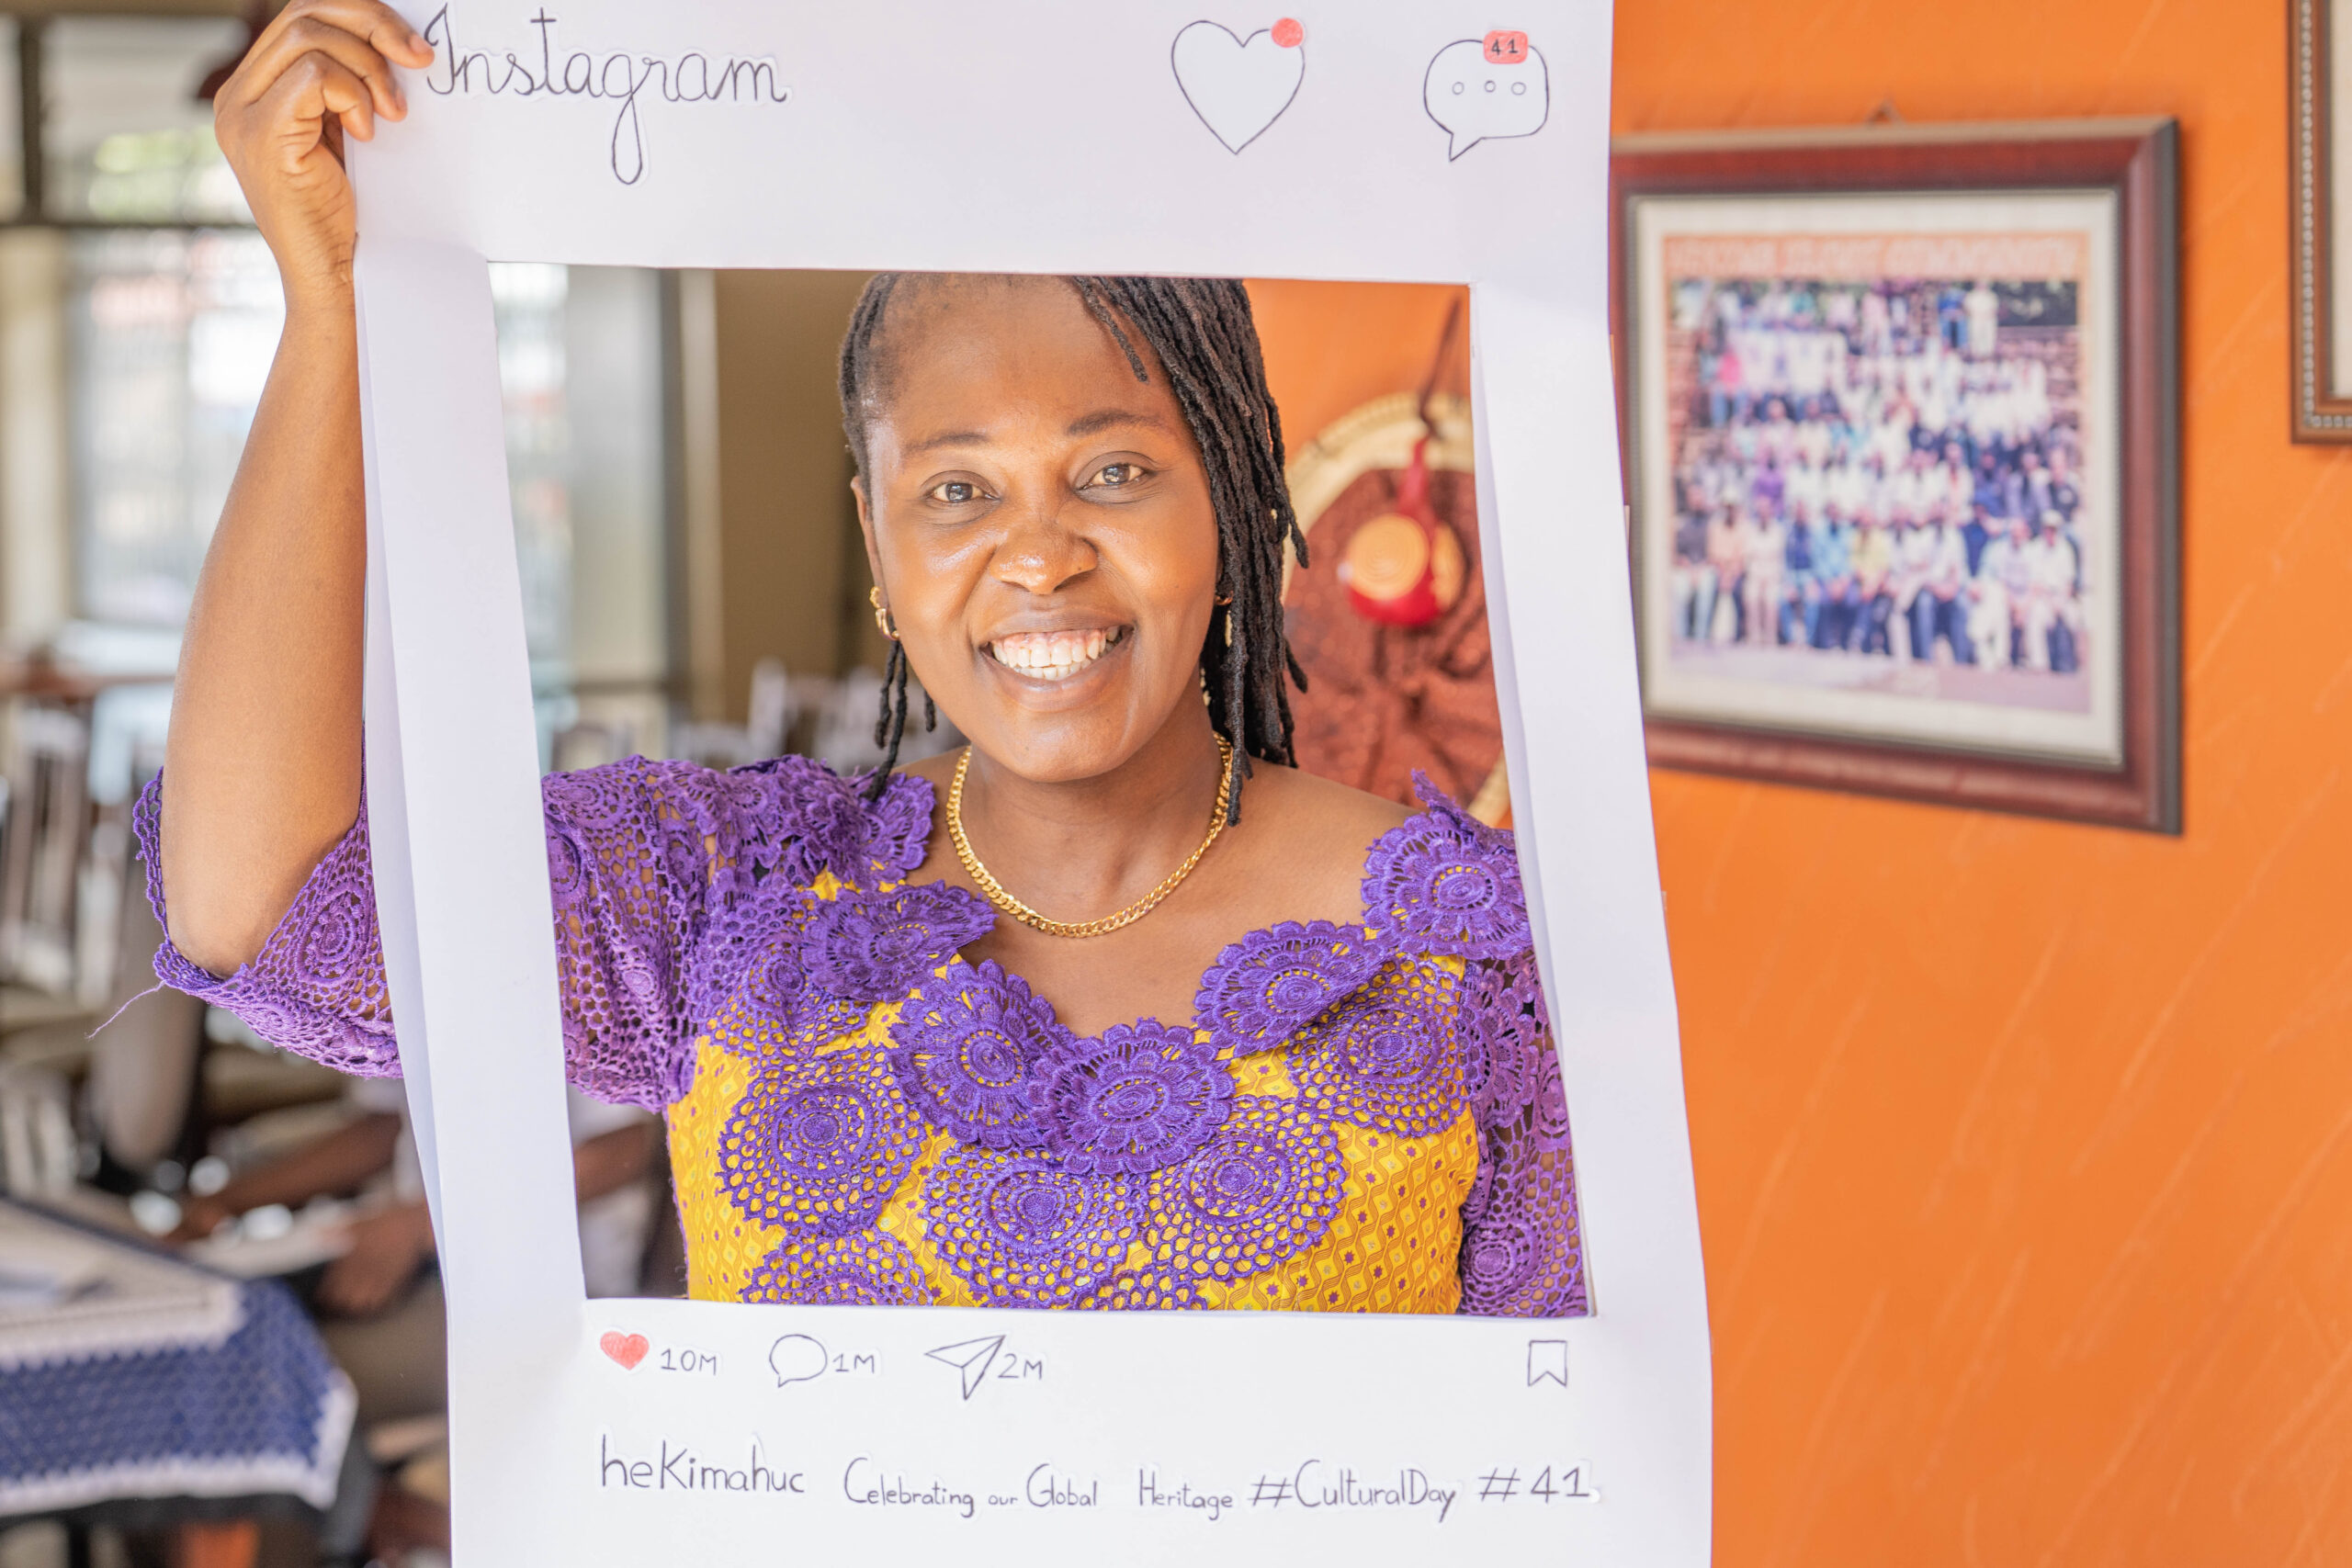 Instagram
41
10M 1M 2M
heKimahuc Celebrating our Global Heritage #CulturalDay #41